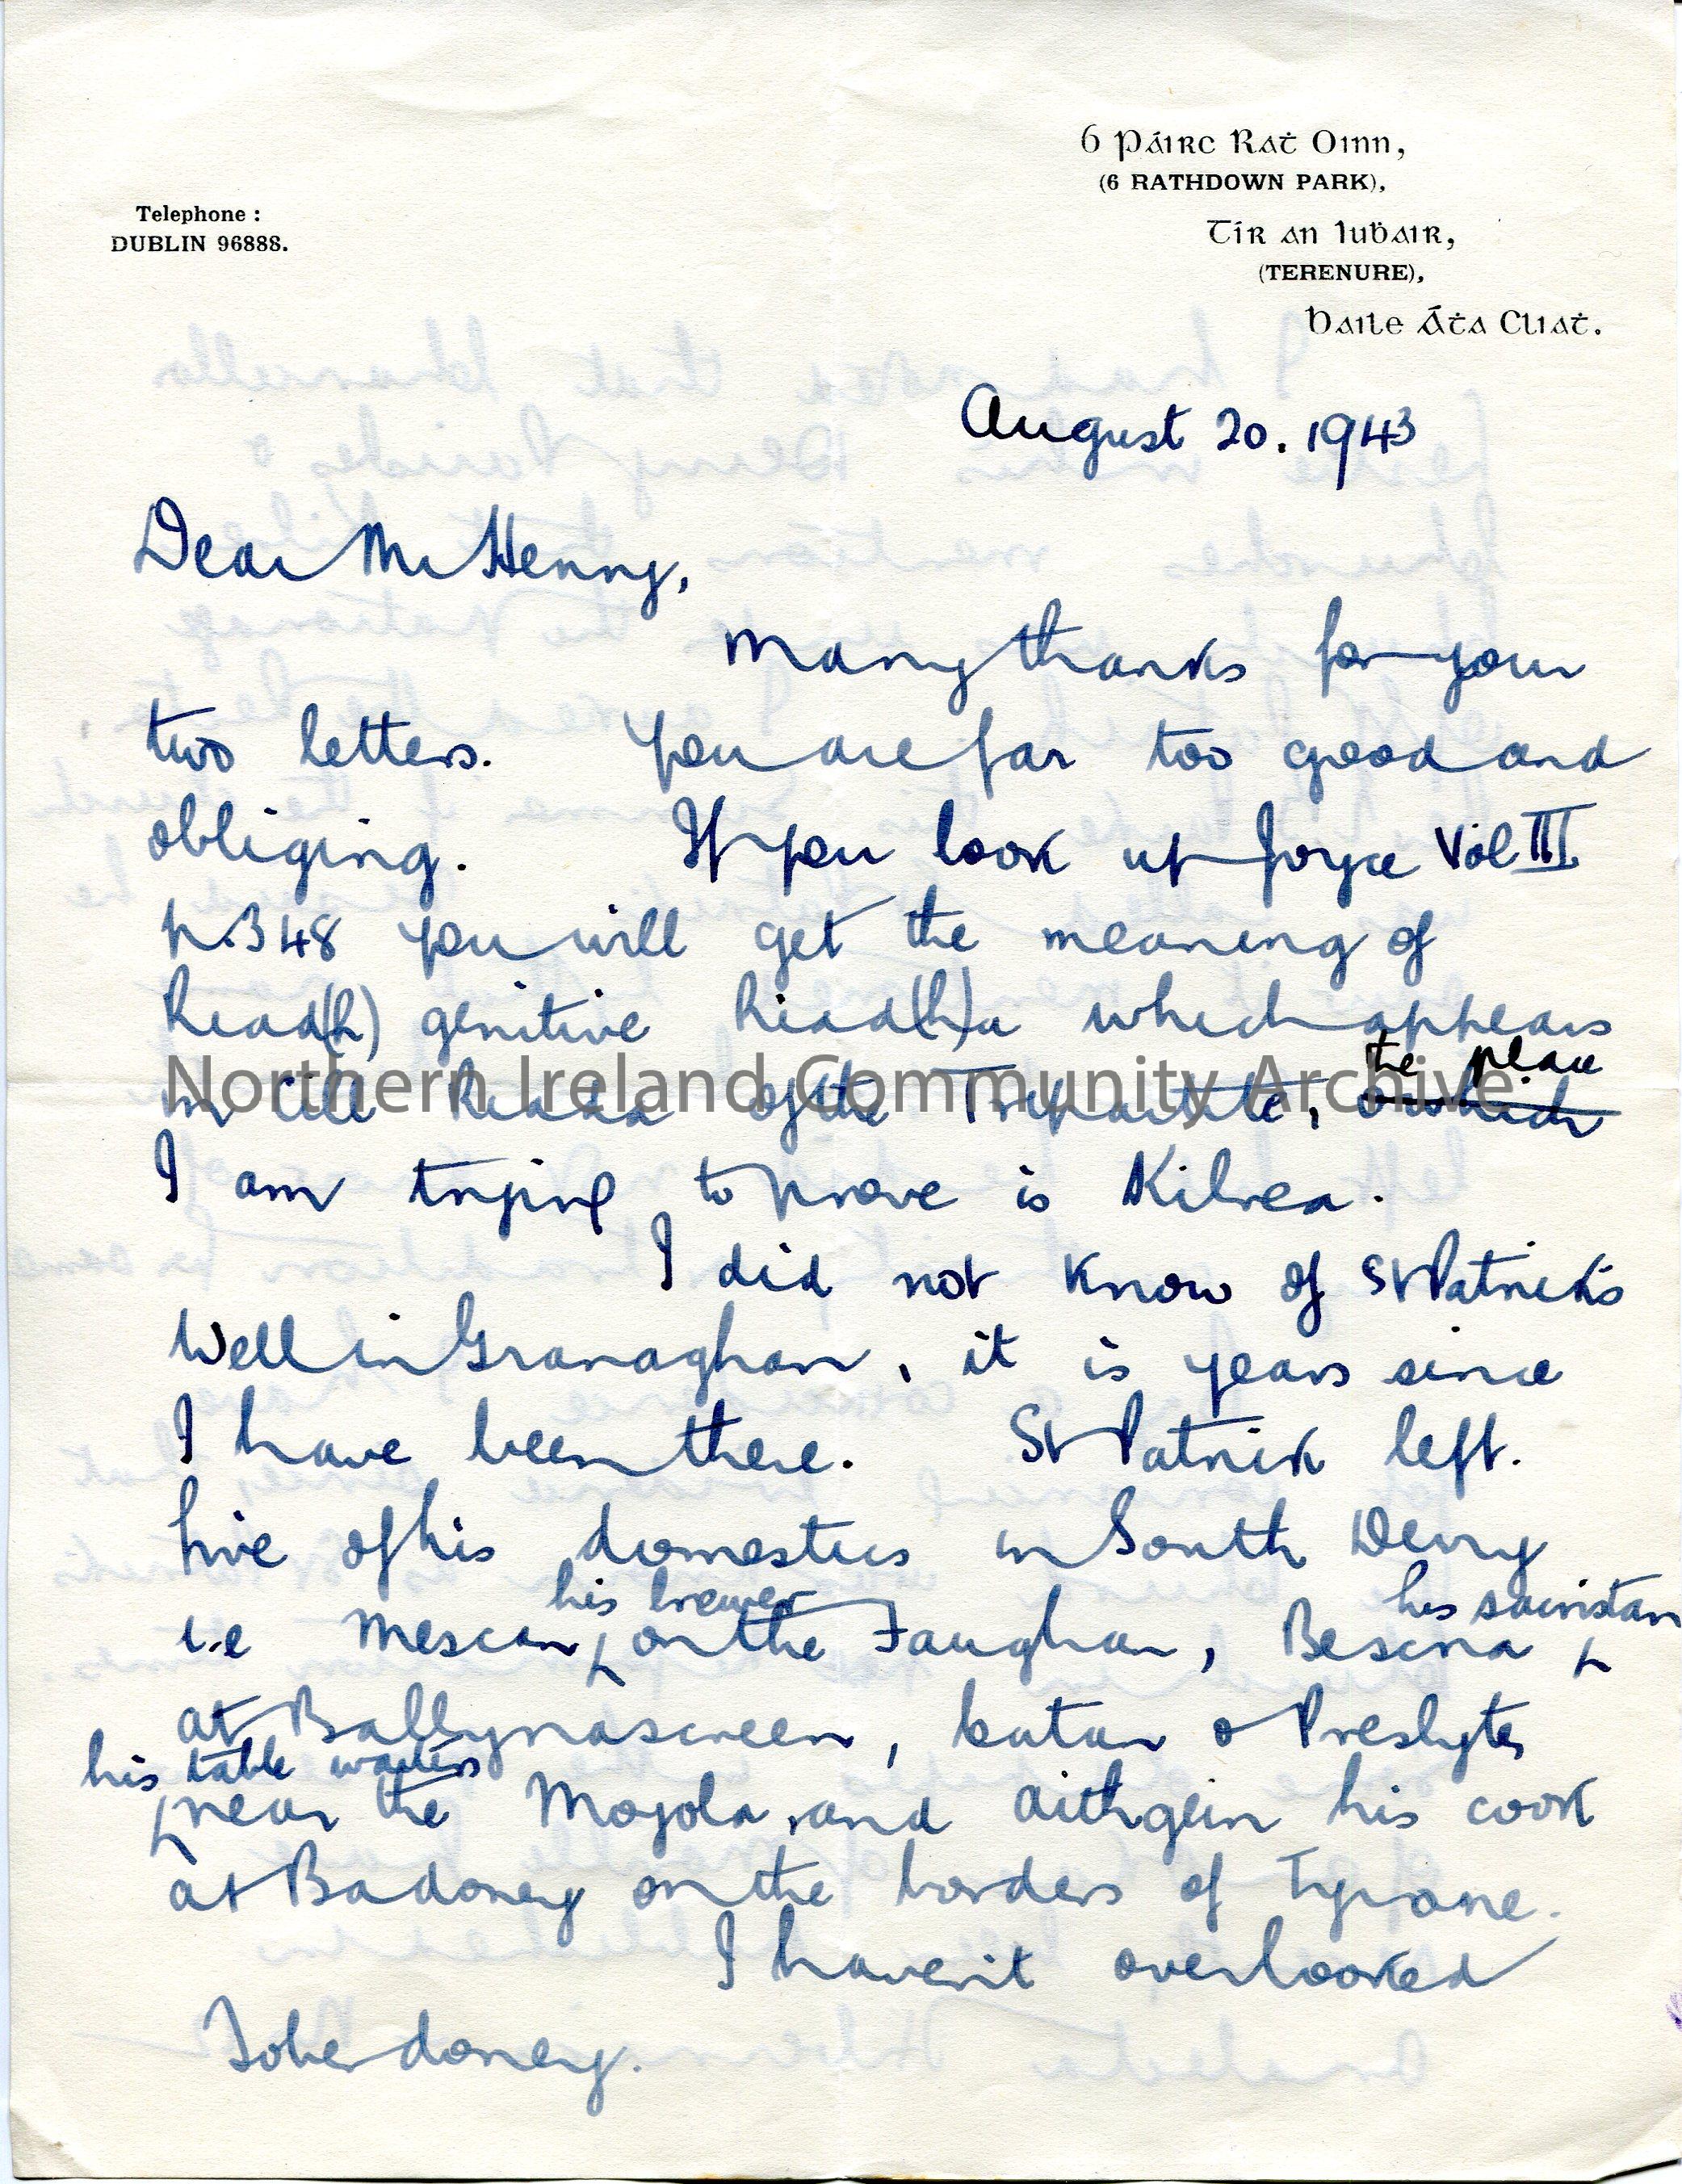 6 Páirc Raṫ Oinn,
(6 RATHDOWN PARK),
Telephone :
DUBLIN 96888.
Tír an Iuḃair,
(TERENURE),
Baile Áṫa Cliaṫ.
August 20. 1943
Dear Mr Henry,
Many thanks for your
two letters. You are far too good and
obliging. If you look up Joyce Vol III
p. 348 you will get the meaning of
Riad(h) genitive Riad(h)a which appears
the place
in Cell Riada of the Tripartite, which
I am trying to prove is Kilrea.
I did not know of St Patrick's
Well in Granaghan, it is years since
I have been there. St Patrick left.
five of his domestics in South Derry
his brewer his sacristan
i.e Mescan, on the Faughan, Bescna
at Ballynascreen, Catan & Presbyter
his table waiters
near the Moyola, and Aithgein his cook
at Badoney on the borders of Tyrone.
I haven't overlooked
Toberdoney.
Northern Ireland Community Archive